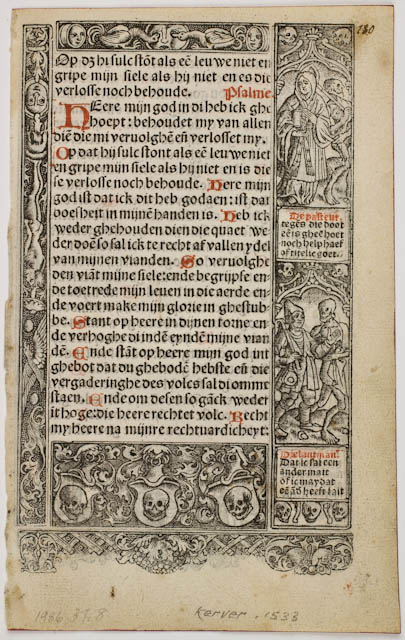 130
Op dz hi sulc stōt als eē leu we niet en
gripe mijn siele als hij niet en es die
verlosse noch behoude. Psalme.
HEere mijn god in di heb ick ghe
hoept: behoudet my van allen
diē die mi vervolghē eñ verlosset my.
Op dat hij sulc stont als eē leu we niet
en gripe mijn siele als hij niet en is die
se verlosse noch behoude. Here mijn
god ist dat ick dit heb gedaen: ist dat
boesheit in minnē handen is. Heb ick
weder ghehouden dien die quaet we
der doē so sal ick te recht af vallen ydel
van mijnen vianden. So vervolghe
den viāt mijne siele: ende begrijpse en
de toetrede mijn leuen in die aerde en
de voert make mijn glorie in ghestub
be. Stant op heere in dijnen torne en
de verhoghe di inden eyndē mijne vian
dē. Ende stāt op heere mijn god int
ghebot dat du ghebodē hebste eñ die
vergaderinghe des volcs sal di omme
staen. Ende om desen so gāck weder
it hoge: die heere rechtet volc. Recht
my heere na mijnre rechtuardicheyt:
De pasteur
tegēs die doot
eē is gheē hoet
noch help haef
of tijtelic goet.
Die lantman.
Dat ic sal een
ander mait
of ic may dat
een ād heeft sait
1986.37.8
Kerver. 1533